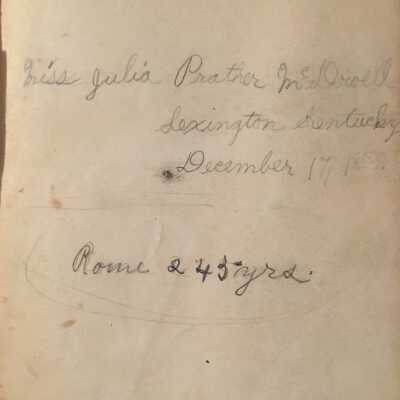 Miss Julia Prather McDowell
Lexington Kentucky
December 17
Rome 245 yrs.